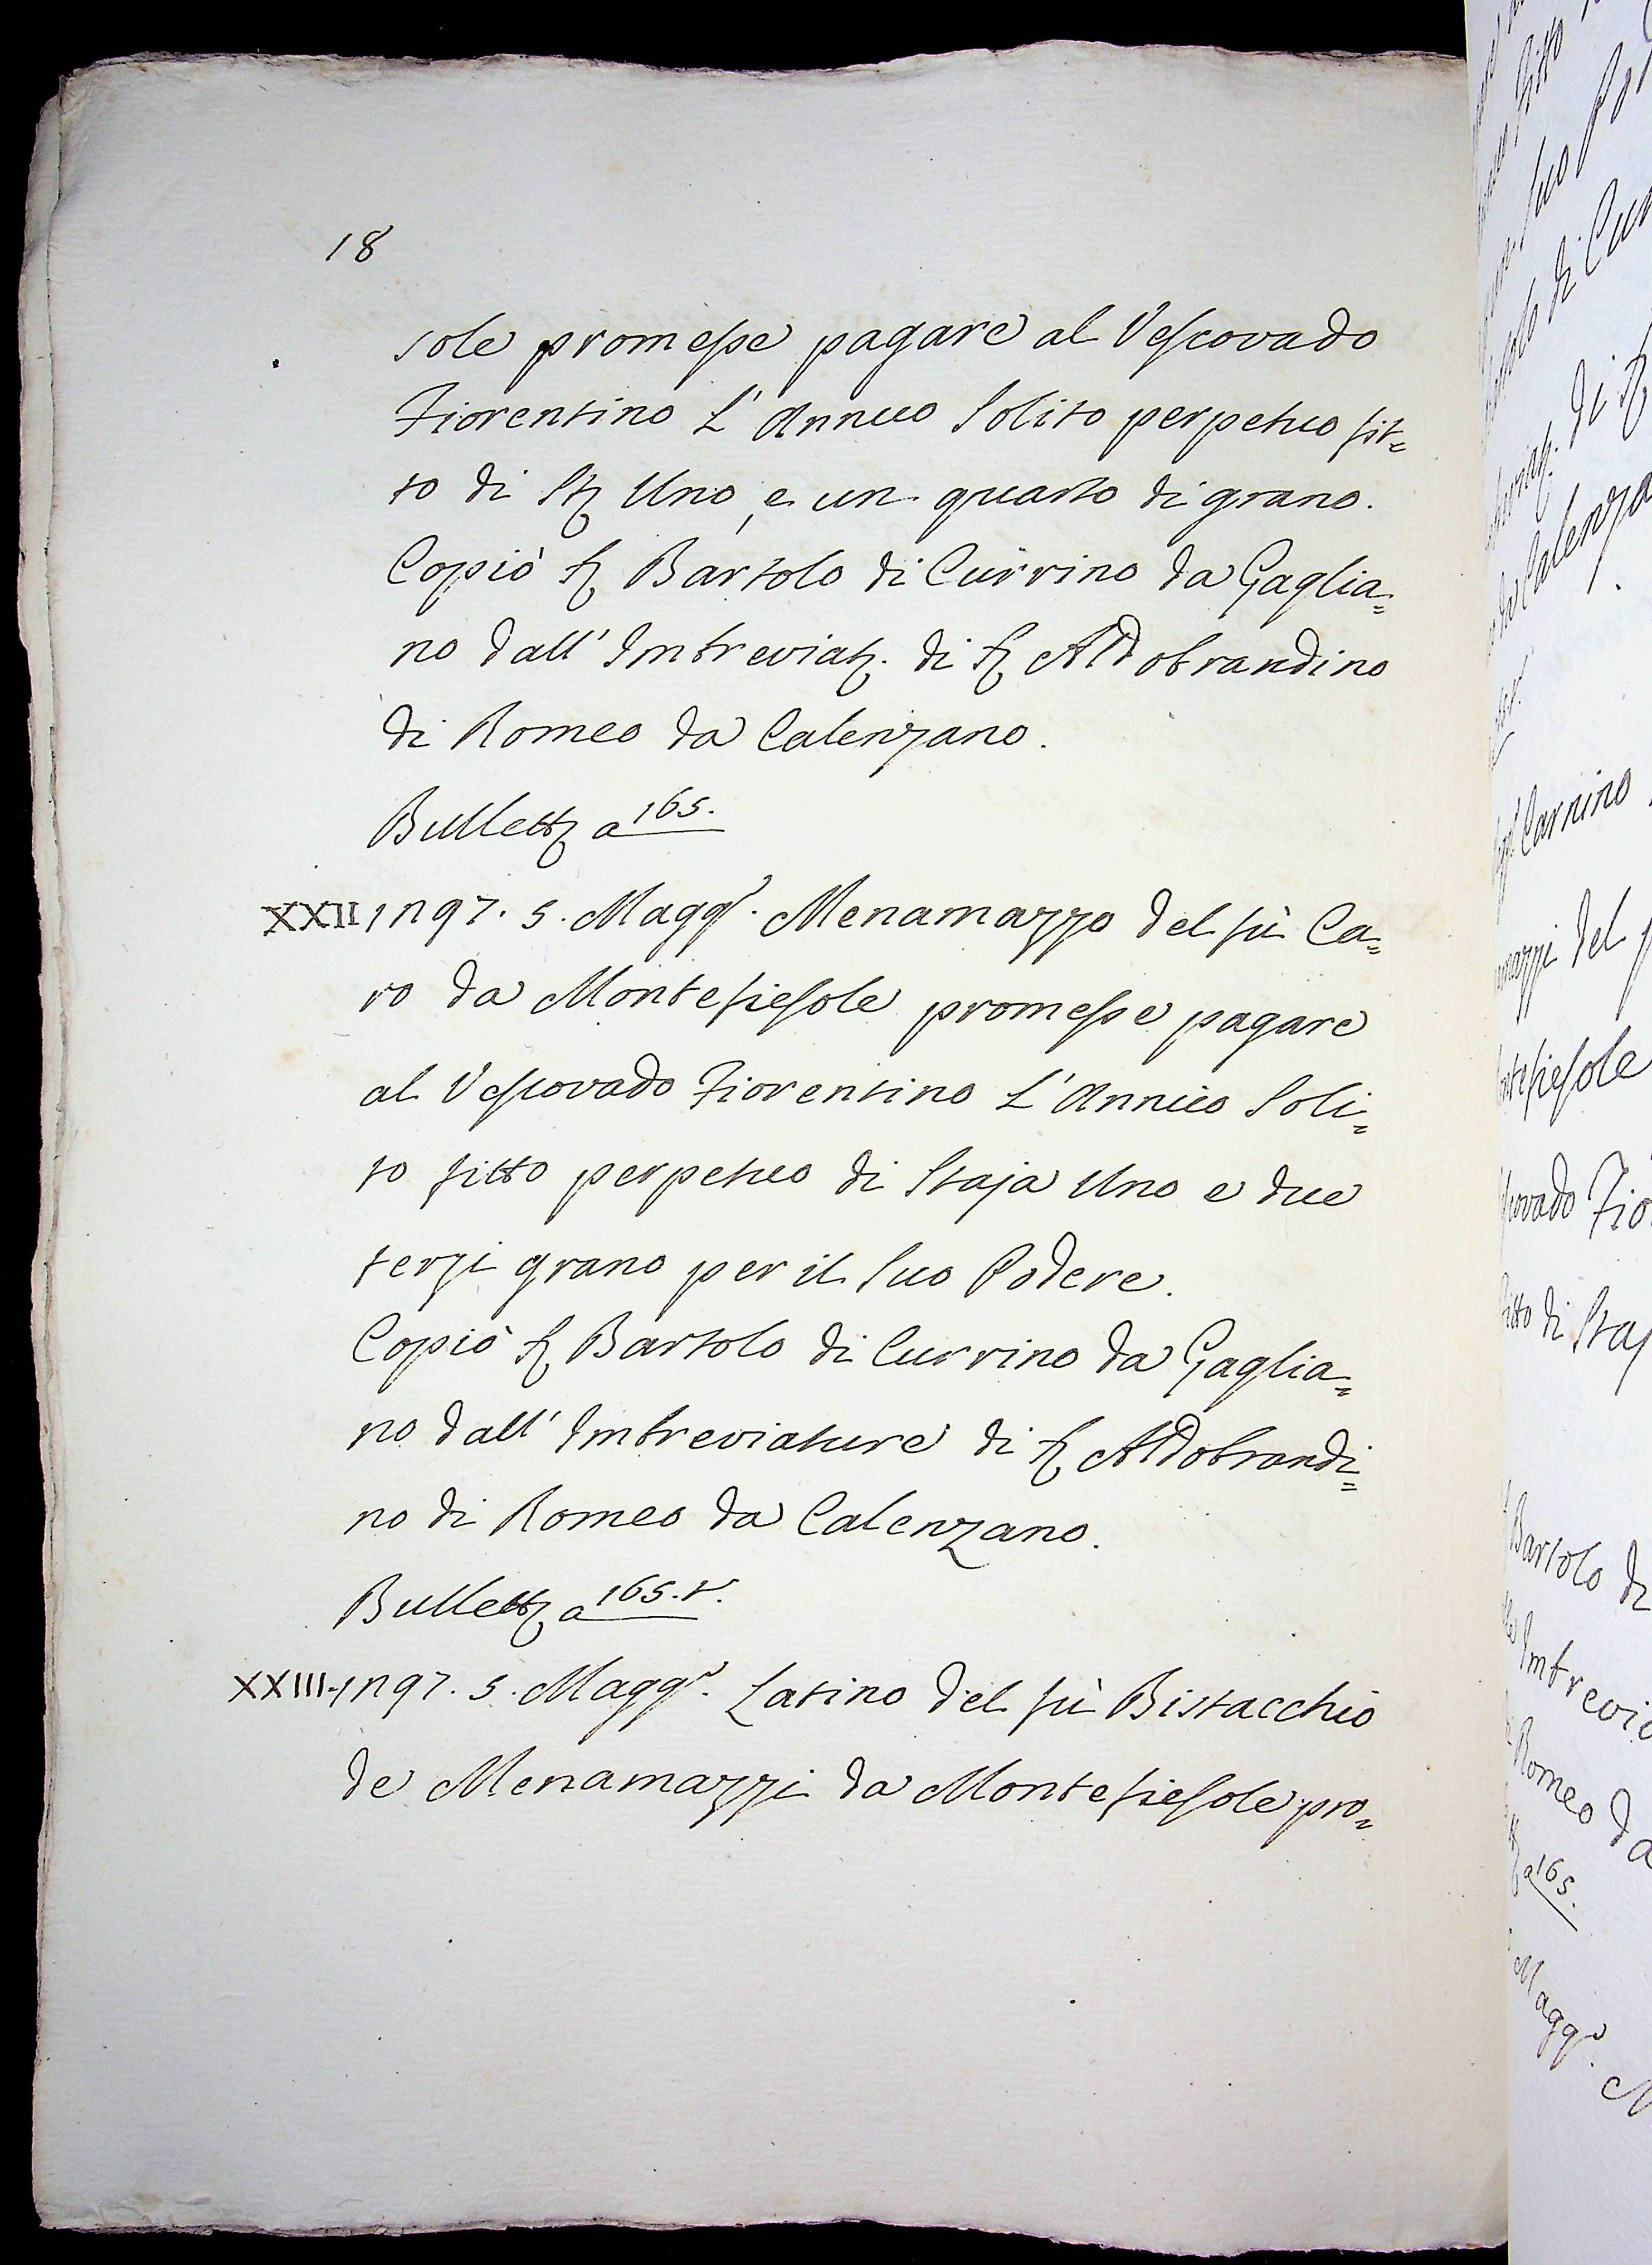 18
sole promesse pagare al Vescovado
Fiorentino L'Annuo Solito perpetuo fit=
to di St. Uno, e un quarto di grano.
Copiò S. Bartolo di Currino da Gaglia=
no dall'Imbreviat. di S. Aldobrandino
di Romeo da Calenzano.
Bullett. a 165.
XXII 1297. 5. Magg. Menamazzo del fù Ca=
ro da Montefiesole promesse pagare
al Vescovado Fiorentino L'Annuo Soli=
to fitto perpetuo di Staja Uno e due
terzi grano per il Suo Podere.
Copiò S. Bartolo di Currino da Gaglia=
no dall'Imbreviature di S. Aldobrandi=
no di Romeo da Calenzano.
Bullett. a 165.t.
XXIII. 1297. 5. Magg. Latino del fù Bistacchio
de Menamazzi da Montefiesole pro=